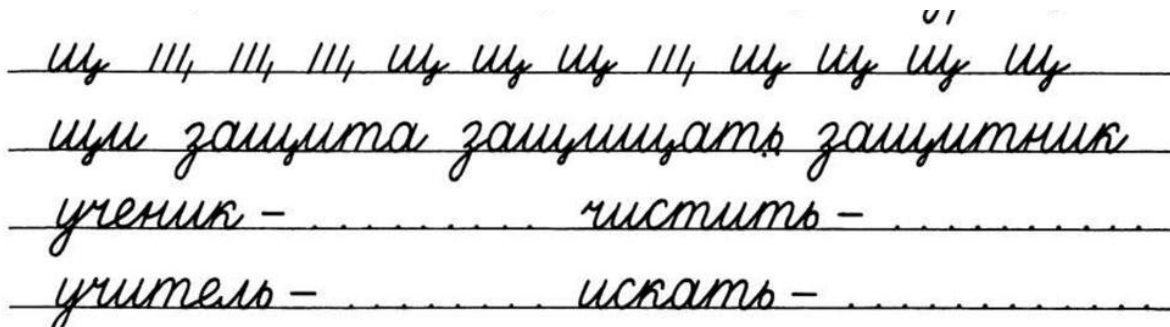 щ щ щ щ щ щ щ щ
щи защита защищать защитник
ученик – . . . . . . . . . чистить – . . . . . . . . . . .
учитель – . . . . . . . . . искать – . . . . . . . . . . . .